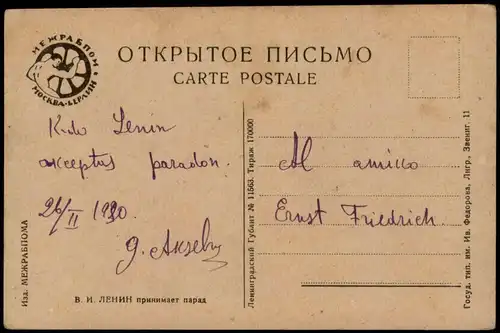 МЕЖРАБПОМ
МОСКВА-БЕРЛИН
ОТКРЫТОЕ ПИСЬМО
CARTE POSTALE
K-do Lenin
akceptas paradon.
26/II 1930.
Al amiko
Ernst Friedrich
Изд. МЕЖРАБПОМА
В. И. ЛЕНИН принимает парад
Ленинградский Гублит № 11563. Тираж 170000
Госуд. тип. им. Ив. Федорова, Лнгр., Звениг. 11